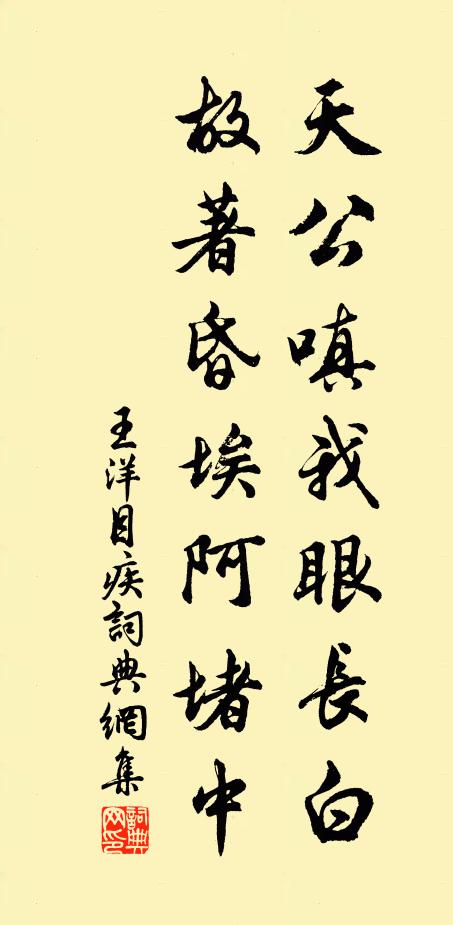 天公嗔我眼長白
故著昏埃阿堵中
王洋目疾詞典網集
詞典网印